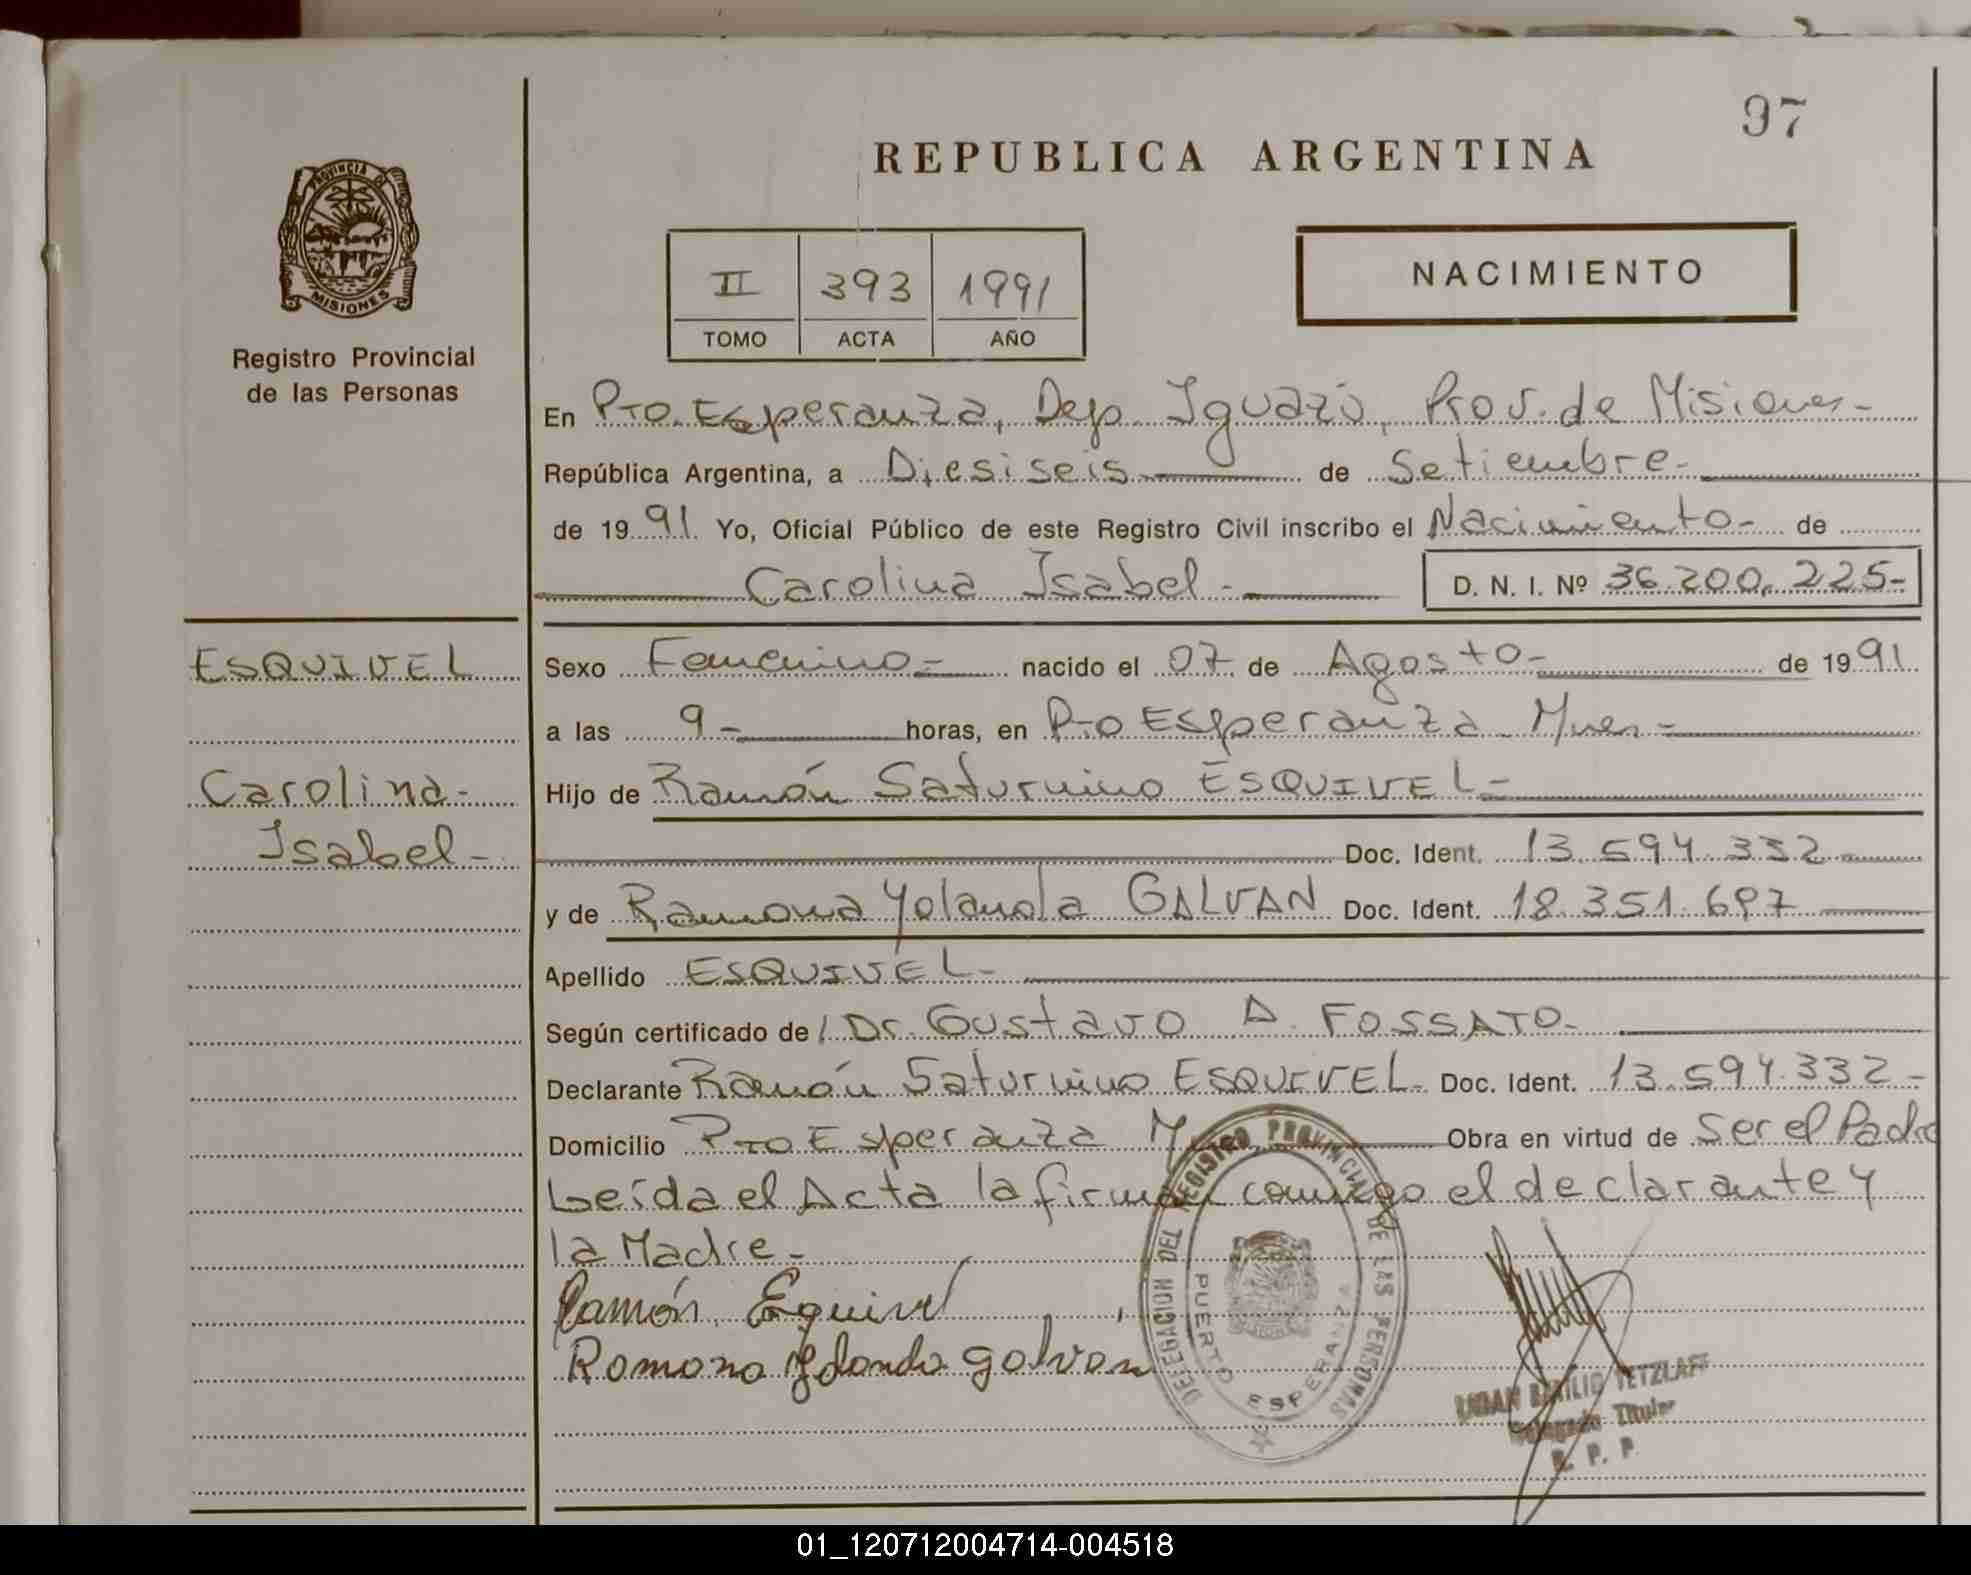 97
REPUBLICA ARGENTINA
PROVINCIA DE
MISIONES
Registro Provincial
de las Personas
NACIMIENTO
II 393 1991
TOMO ACTA AÑO
En Pto. Esperanza, Dep. Iguazú, Prov. de Misiones-
República Argentina, a Diesiseis de Setiembre-
de 1991. Yo, Oficial Público de este Registro Civil inscribo el Nacimiento- de
Carolina Isabel- D. N. I. Nº 36.200.225-
ESQUIVEL
Carolina-
Isabel-
Sexo Femenino- nacido el 07 de Agosto- de 1991
a las 9- horas, en Pto Esperanza Mnes-
Hijo de Ramón Saturnino ESQUIVEL-
Doc. Ident. 13.594.332
y de Ramona Yolanda GALVAN Doc. Ident. 18.351.697
Apellido ESQUIVEL-
Según certificado de / Dr. Gustavo A. FOSSATO-
Declarante Ramón Saturnino ESQUIVEL- Doc. Ident. 13.594.332-
Domicilio Pto Esperanza Obra en virtud de Ser el Padre
Leída el Acta la firman conmigo el declarante y
la Madre-
Ramón Equivel
Romono Yolondo golvon
DELEGACION DEL REGISTRO PROVINCIAL DE LAS PERSONAS
PUERTO ESPERANZA
TETZLAFF
Delegado Titular
R. P. P.
01_120712004714-004518